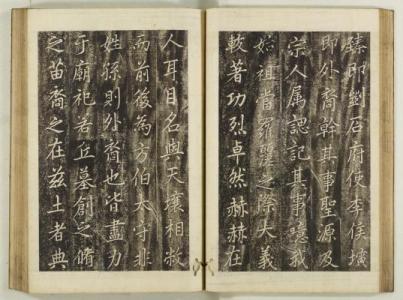 臻府使李侯
即外裔幹其事聖源及
宗人属認記其事噫我
始祖當羅麗之際大義
較著功烈卓然赫赫在
人耳目名與天壤相敝
而前後為方伯太守非
姓孫則外裔也皆盡力
于廟祀若丘墓創之脩
之苗裔之在茲土者典